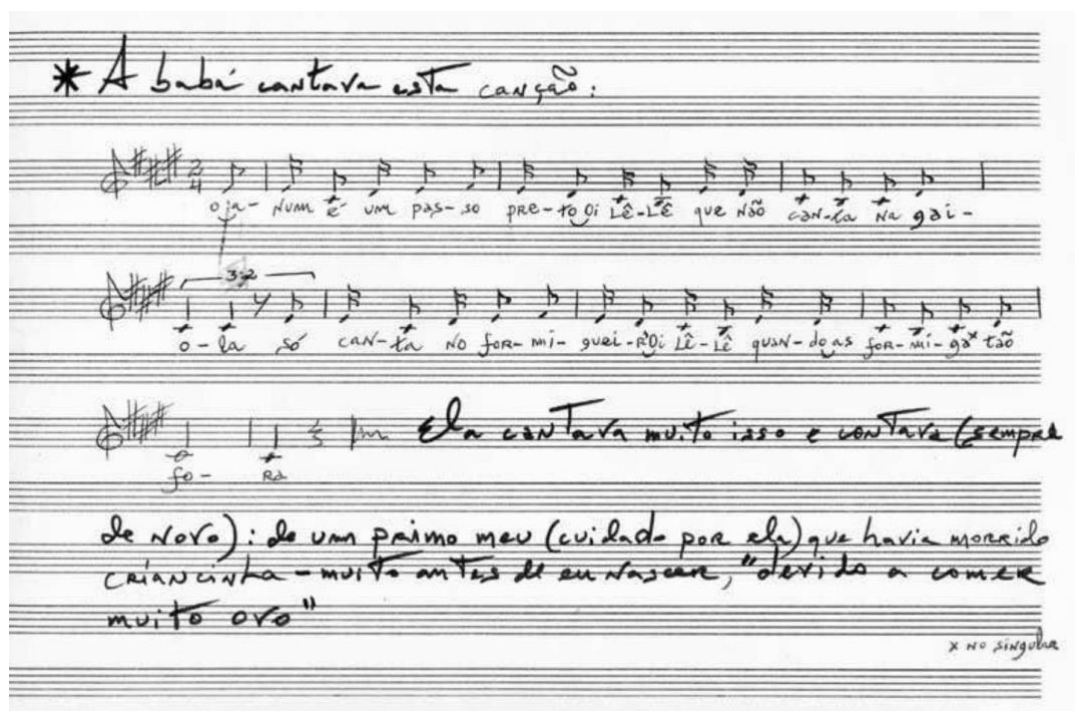 * A babá cantava esta canção:
2 4
o ja- NUM é um pas-so pre-to Oi LÊ-LÊ que Não can-ta Na gai-
3:2
o-la só can-ta no for-mi-guei-R'Oi LÊ-LÊ quan-do as for-mi-ga* tão
fo-RA Ela cantava muito isso e contava (sempre
de novo): de um primo meu (cuidado por ela) que havia morrido
criancinha - muito antes de eu nascer, "devido a comer
muito ovo"
x no singular